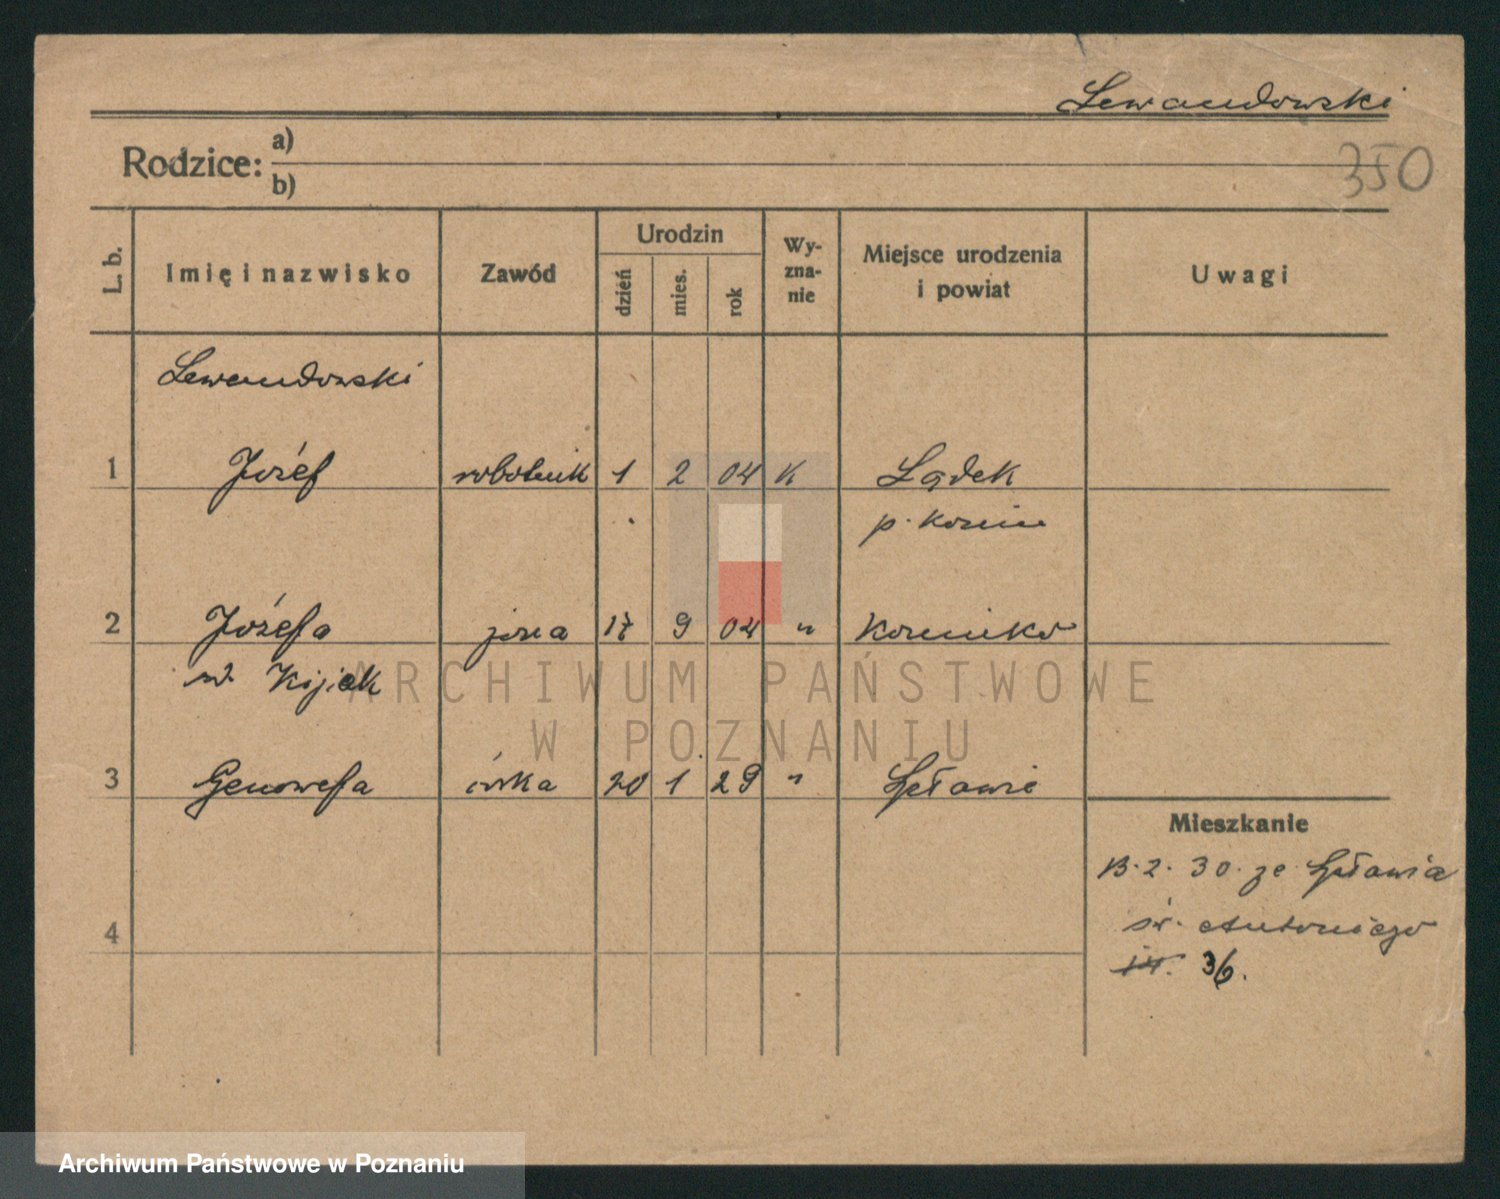 Lewandowski
350
Rodzice: a)
b)
L. b.
Imię i nazwisko
Zawód
Urodzin
dzień
mies.
rok
Wy-
zna-
nie
Miejsce urodzenia
i powiat
Uwagi
Lewandowski
1 Józef robotnik 1 2 04 K Lądek
p. Konin
2 Józefa żona 17 9 04 "
w. Kijak
3 Genowefa córka 20 1 29 " Spławie
Mieszkanie
13.2.30. ze Spławia
św. Antoniego
36.
4
ARCHIWUM PAŃSTWOWE
W POZNANIU
Archiwum Państwowe w Poznaniu